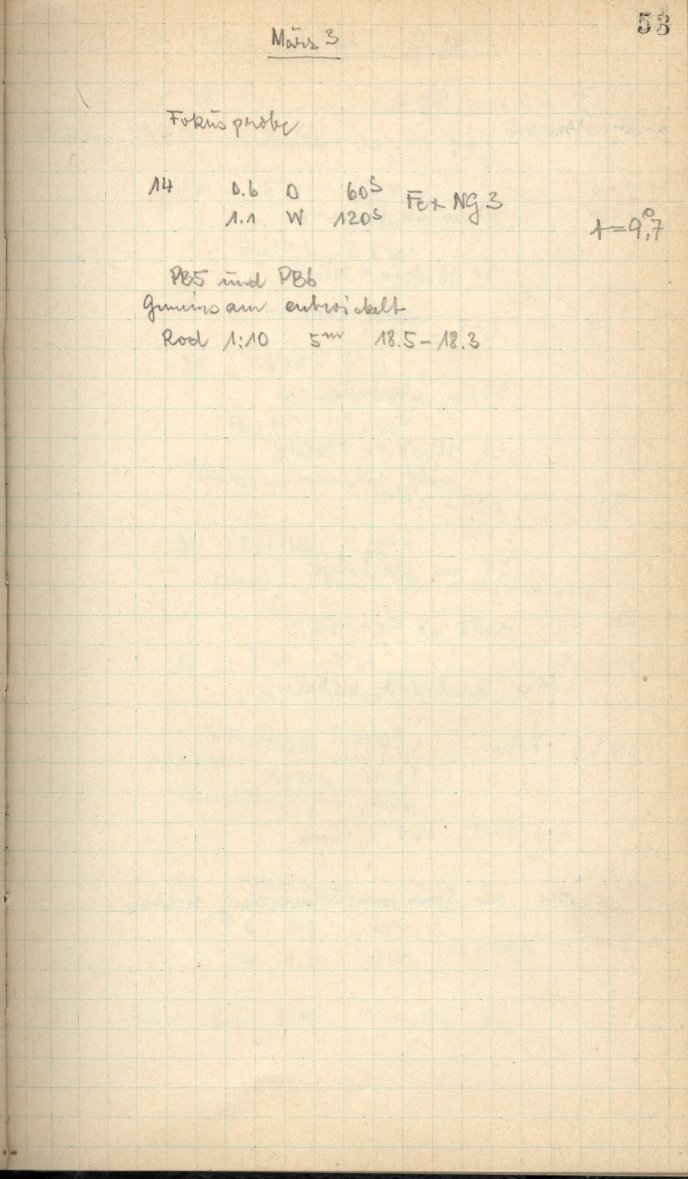 58
März 3
Fokusprobe
14 0.6 O 60s Fe + NG 3
1.1 W 120s
t = 9°,7
PB5 und PB6
Gemeinsam entwickelt
Rod 1:10 5m 18.5 - 18.3